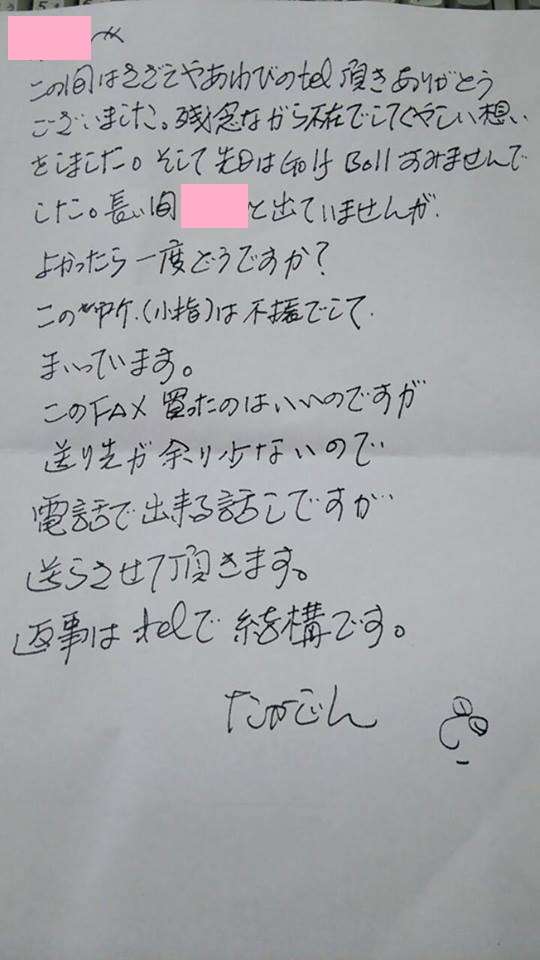 この間はさざえやあわびのtel頂きありがとう
ございました。残念ながら不在でしてくやしい想い
をしました。そして先日はGolf Ballすみませんで
した。長い間 と出ていませんが、
よかったら一度どうですか?
この(小指)は不援でして
まいっています。
このFAX買ったのはいいのですが
送り先が余り少ないので
電話で出来る話しですが
送らさせて頂きます。
返事はtelで結構です。
たかごん